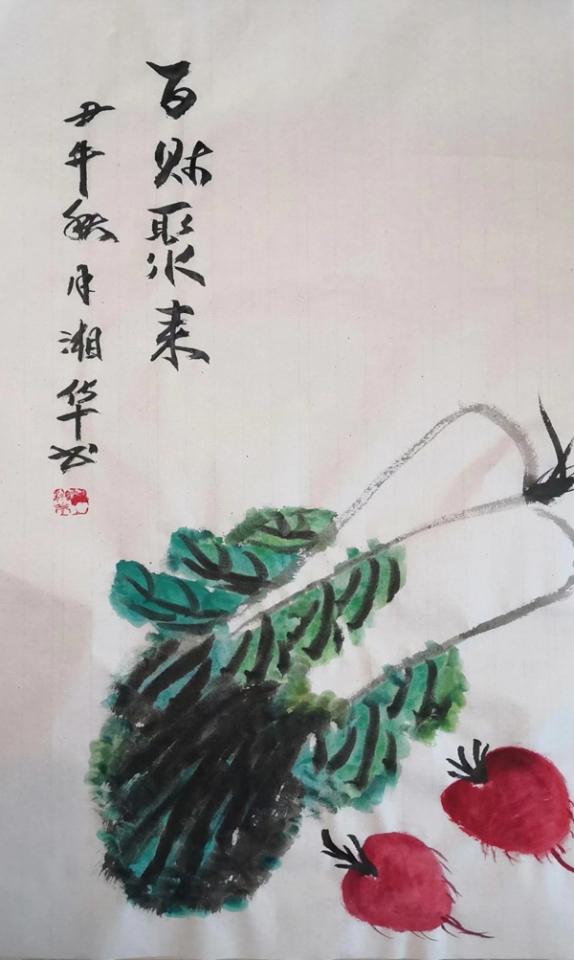 百财聚来
丑年秋月湘华书